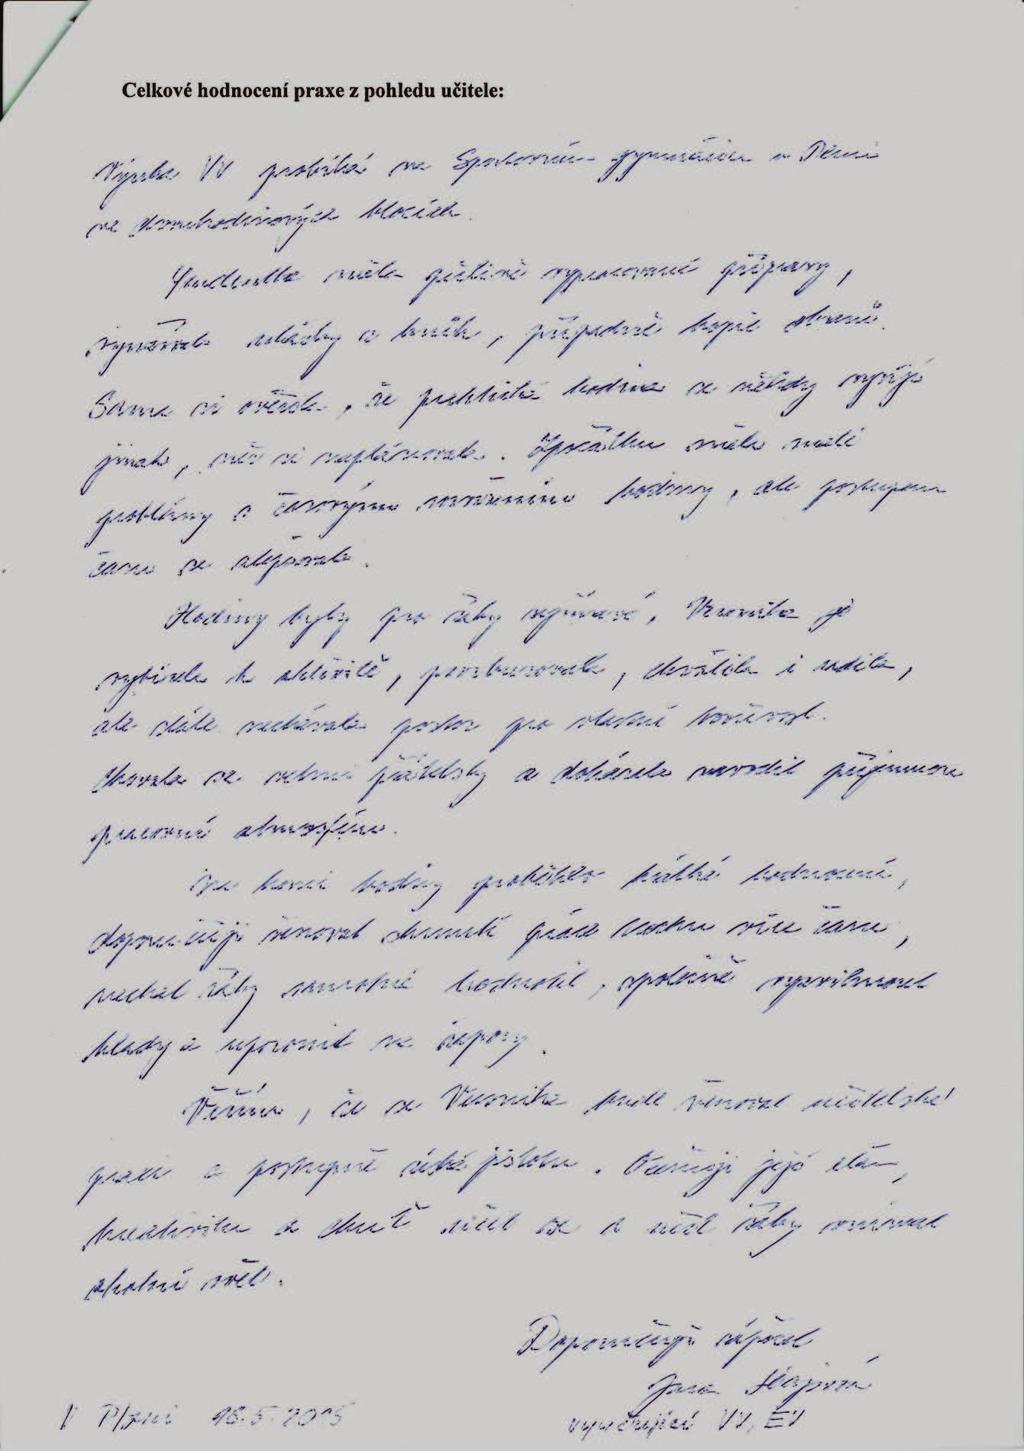 Celkové hodnocení praxe z pohledu učitele:
Výuka VV probíhá na Sportovním gymnáziu v Plzni
ve dvouhodinových blocích.
Studentka měla pečlivě vypracované přípravy,
vynášela ukázky z knih, případně kopie obrazů.
Sama si ověřila, že praktická hodina se někdy vyvíjí
jinak, než si naplánovala. Zpočátku měla malé
problémy s časovým rozvržením hodiny, ale postupem
času se zlepšovala.
Hodiny byly pro žáky zajímavé, Veronika je
vybízela k aktivitě, povzbuzovala, chválila i radila,
ale stále nechávala prostor pro vlastní tvořivost.
Chovala se velmi přátelsky a dokázala navodit příjemnou
pracovní atmosféru.
Na konci hodiny proběhlo krátké hodnocení,
doporučuji věnovat shrnutí práce trochu více času,
nechat žáky samotné hodnotit, společně vyzvihnout
klady a upozornit na zápory.
Věřím, že se Veronika bude věnovat učitelské
praxi a postupně získá jistotu. Oceňuji její elán,
kreativitu a chuť učit se a učit žáky vnímat
okolní svět.
Doporučuji zápočet
Jana
vyučující VV, EV
V Plzni 18.5.2015